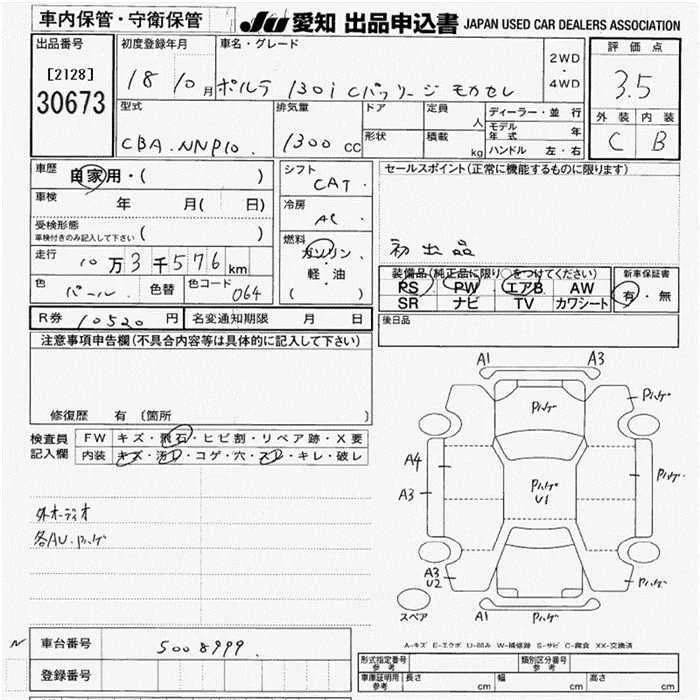 車内保管・守衛保管
JU 愛知 出品申込書 JAPAN USED CAR DEALERS ASSOCIATION
出品番号
[2128]
30673
初度登録年月
18 10月
車名・グレード
ポルテ 130i Cパッケージ モカセレ
2WD
・
4WD
評価点
3.5
外装 内装
C B
型式
CBA-NNP10
排気量
1300 CC
ドア
形状
定員
人
積載
kg
ディーラー・並 行
モデル年式 年
ハンドル 左・右
車歴
自家用・( )
車検
年 月( 日)
受検形態
車検付きのみ記入して下さい ( )
走行
10万3千576km
色
パール
色替
色コード
064
シフト
CAT
冷房
AC
燃料
ガソリン
・
軽 油
( )
セールスポイント(正常に機能するものに限ります)
初出品
装備品(純正品に限り○をつけてください)
PS PW エアB AW
SR ナビ TV カワシート
新車保証書
有・無
R券 10520 円 名変通知期限 月 日
後日品
注意事項申告欄(不具合内容等は具体的に記入して下さい)
修復歴 有 (箇所 )
検査員
記入欄
FW キズ・飛石・ヒビ割・リペア跡・X要
内装 キズ・汚レ・コゲ・穴・スレ・キレ・破レ
外オーディオ
各AU.Pハゲ
A1 A3
Pハゲ
Pハゲ
A4
A3
Pハゲ
U1
Pハゲ
A3
U2
Pハゲ
スペア
A1
Pハゲ
A-キズ E-エクボ U-凹み W-補修跡 S-サビ C-腐食 XX-交換済
N
車台番号
5008999
登録番号
形式指定番号
参 考
類別区分番号
参 考
車庫証明用
参考
長さ cm
幅 cm
高さ cm